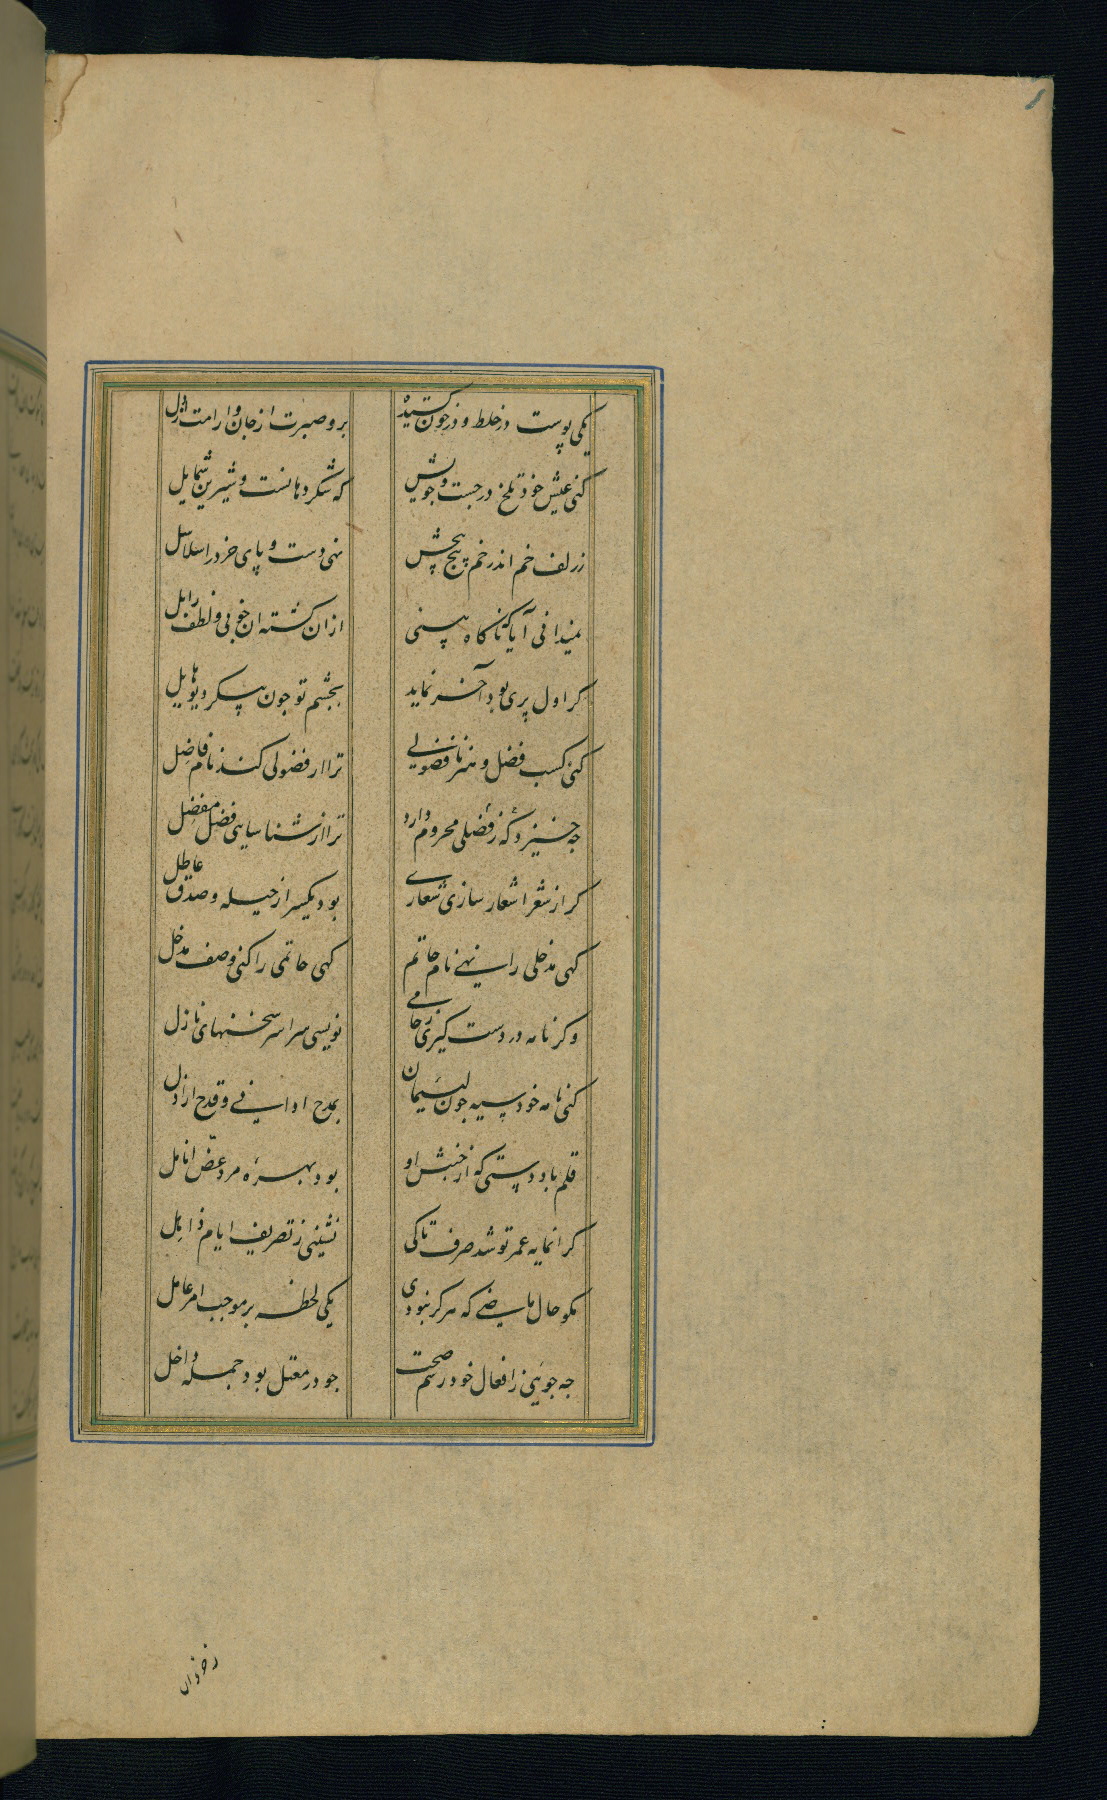 یکی پوست در خلط و در خون کشیده برو صبرت از جان و ارامت از دل
کنی عیش خود تلخ در جست و جویش که شکر دهانست و شیرین شمایل
ز زلف خم اندر خم پیچ پیچش نهی دست و پای خرد را سلاسل
نمیدانی آیا که ناگاه بینی ازان کشته ان خوبی و لطف زایل
کر اول پری بود آخر نماید بچشم تو جون پیکر دیو هایل
کنی کسب فضل و هنر تا فضولی ترا از فضولی کند نام فاضل
جه خیزد که از فضل محروم دارد ترا از شناسایی فضل مفضل
کر از شعر اشعار سازی شعاری بود یکسر از حیله و صدق عاطل
کهی مدخلی را نهی نام حاتم کهی حاتمی را کنی وصف مدخل
وکر نامه در دست کیری نویسی سراسر سخنهای نازل
کنی نامه خود سیه جون لئیمان بمدح ادانی و قدح اراذل
قلم باد دستی که از جنبش او بود بهره مرد عض انامل
کرانمایه عمر تو شد صرف تا کی نشینی ز تصریف ایام ذاهل
مکو حال ماضی که هرکز نبودی یکی لحظه بر موجب امر عامل
جه جویی ز افعال خود رسم صحت جو در معتل بود جمله داخل